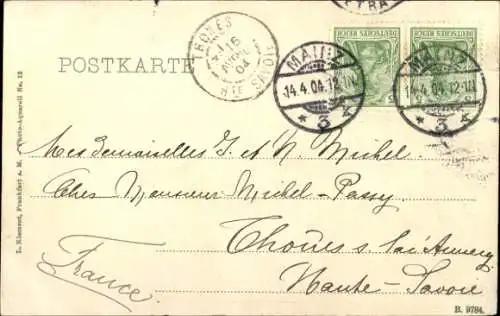 POSTKARTE
MAINZ
14.4.04.12-1N.
* 3 A
MAINZ
14.4.04.12-1N
* 3 A
DEUTSCHES REICH
DEUTSCHES REICH
16
AVRIL
04
Hte SAVOIE
Mesdemoiselles J. et N. Michel.
Chez Monsieur Michel-Passy
Thônes s.
France
Haute-Savoie
L. Klement, Frankfurt a. M. Photo-Aquarell No. 12
B. 9784.